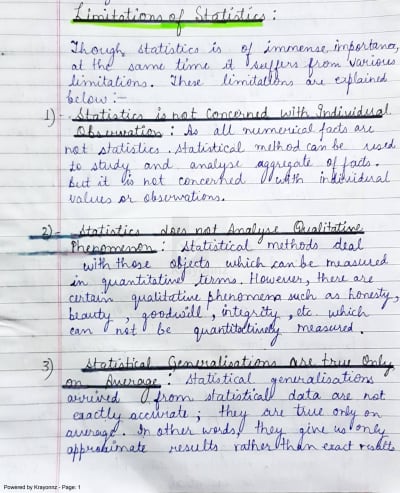 Limitations of Statistics :
Though statistics is of immense importance,
at the same time it suffers from various
limitations. These limitations are explained
below :-
1) - Statistics is not Concerned with Individual
Observation : As all numerical facts are
not statistics. statistical method can be used
to study and analyse aggregate of facts.
but it is not concerned with individual
values or observations.
2) - Statistics does not Analyse Qualitative
Phenomenon : Statistical methods deal
with those objects which can be measured
in quantitative terms. However, there are
certain qualitative phenomena such as honesty,
beauty, goodwill, integrity, etc. which
can not be quantitatively measured.
3) Statistical Generalisations are true Only
on Average : Statistical generalisations
arrived from statistical data are not
exactly accurate; they are true only on
average. In other words, they give us only
approximate results rather than exact results
Powered by Krayonnz - Page: 1